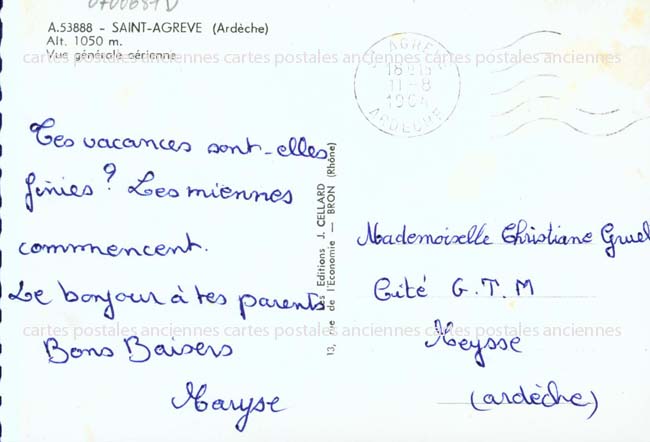 A.53888 - SAINT-AGREVE (Ardèche)
Alt. 1050 m.
Vue générale aérienne
cartes postales anciennes cartes postales anciennes cartes postales anciennes
AGREVE
11-8
ARDECHE
Tes vacances sont-elles
finies? Les miennes
commencent.
Le bonjour à tes parents
Bons Baisers
Maryse
Editions J. CELLARD
13, rue de l'Economie — BRON (Rhône)
Mademoiselle Christiane Gruel
Cité G.T.M
Meysse
(ardèche)
cartes postales anciennes cartes postales anciennes cartes postales anciennes